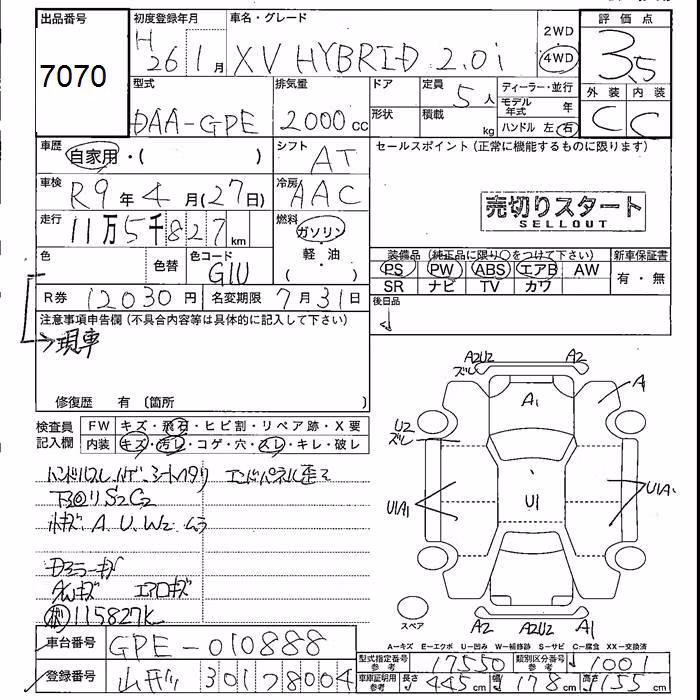 出品番号
7070
初度登録年月
H 26 1月
車名・グレード
XV HYBRID 2.0i
2WD
4WD
評価点
3.5
外装 内装
C C
型式
DAA-GPE
排気量
2000cc
ドア
形状
定員
5人
積載
kg
ディーラー・並行
モデル年式 年
ハンドル 左・右
車歴
自家用・( )
シフト
AT
セールスポイント (正常に機能するものに限ります)
車検
R9年4月(27日)
冷房
AAC
売切りスタート
SELLOUT
走行
11万5千827km
燃料
ガソリン
軽・油
( )
色
色替
色コード
G1U
装備品 (純正品に限り○をつけて下さい)
新車保証書
PS PW ABS エアB AW
SR ナビ TV カワ
有・無
R券 12030円
名変期限 7月31日
後日品
注意事項申告欄 (不具合内容等は具体的に記入して下さい)
現車
修復歴 有 〔箇所
検査員記入欄
FW キズ・飛石・ヒビ割・リペア跡・X要
内装 キズ・汚レ・コゲ・穴・スレ・キレ・破レ
ハンドルスレ ハゲ シートヘタリ エンドパネル歪2
下回りS2C2
小キズ A.U.W2 ムラ
ドアミラーキズ
エアロキズ
115827K
A2U2 A2
ズレ
A1 A1
U2
ズレ
U1A1 U1 U1A1
スペア
A2 A2U2 A1
A-キズ E-エクボ U-凹み W-補修跡 S-サビ C-腐食 XX-交換済
車台番号 GPE-010888
型式指定番号 参考 17550
類別区分番号 参考 1001
登録番号 301 8004
車庫証明用 参考 長さ 445cm 幅 178cm 高さ 155cm